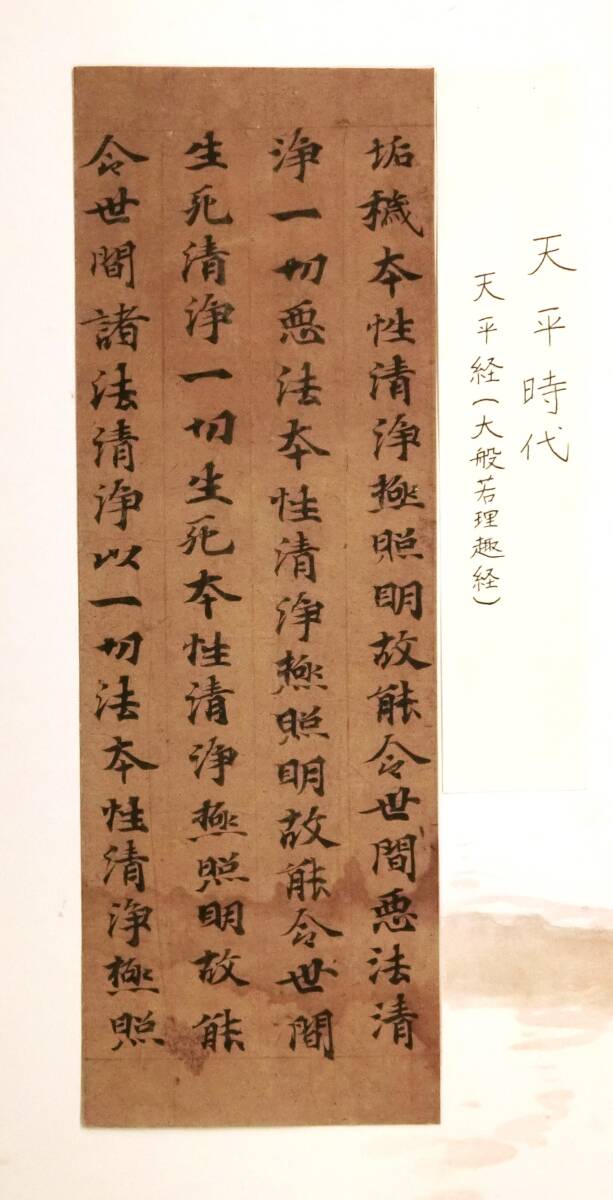 天平時代
天平経(大般若理趣経)
垢穢本性清浄極照明故能令世間悪法清
浄一切悪法本性清浄極照明故能令世間
生死清浄一切生死本性清浄極照明故能
令世間諸法清浄以一切法本性清浄極照